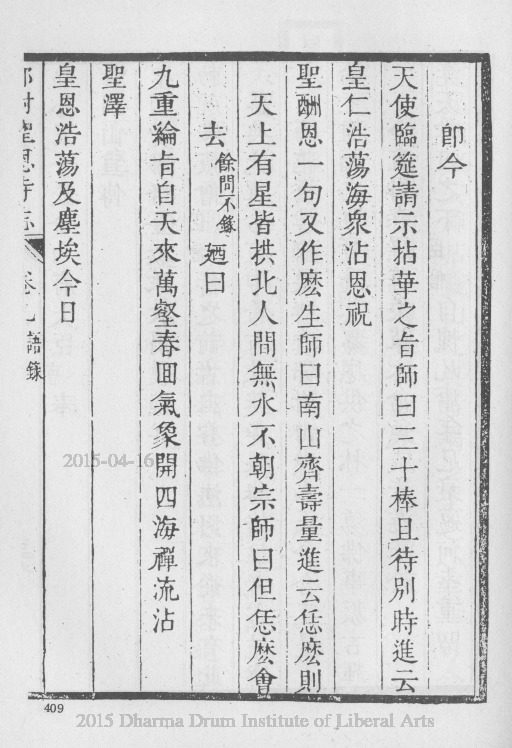 卽今
天使臨筵請示拈華之旨師曰三十棒且待別時進云
皇仁浩蕩海眾沾恩祝
聖酬恩一句又作麽生師曰南山齊壽量進云恁麽則
天上有星皆拱北人間無水不朝宗師曰但恁麽會
去餘問不錄廼曰
九重綸旨自天來萬壑春回氣象開四海禪流沾
聖澤
皇恩浩蕩及塵埃今日
聖恩寺志
語錄
2015-04-16
409
2015 Dharma Drum Institute of Liberal Arts